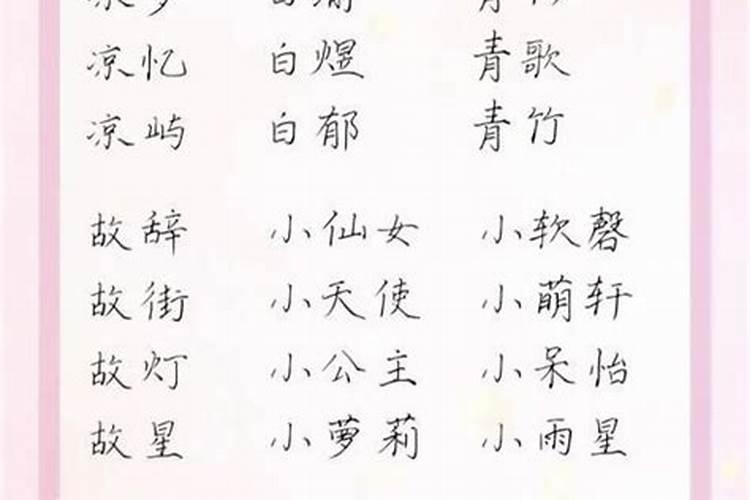 凉忆 白煜 青歌
凉屿 白郁 青竹
故辞 小仙女 小软磬
故街 小天使 小萌轩
故灯 小公主 小呆怡
故星 小萝莉 小雨星